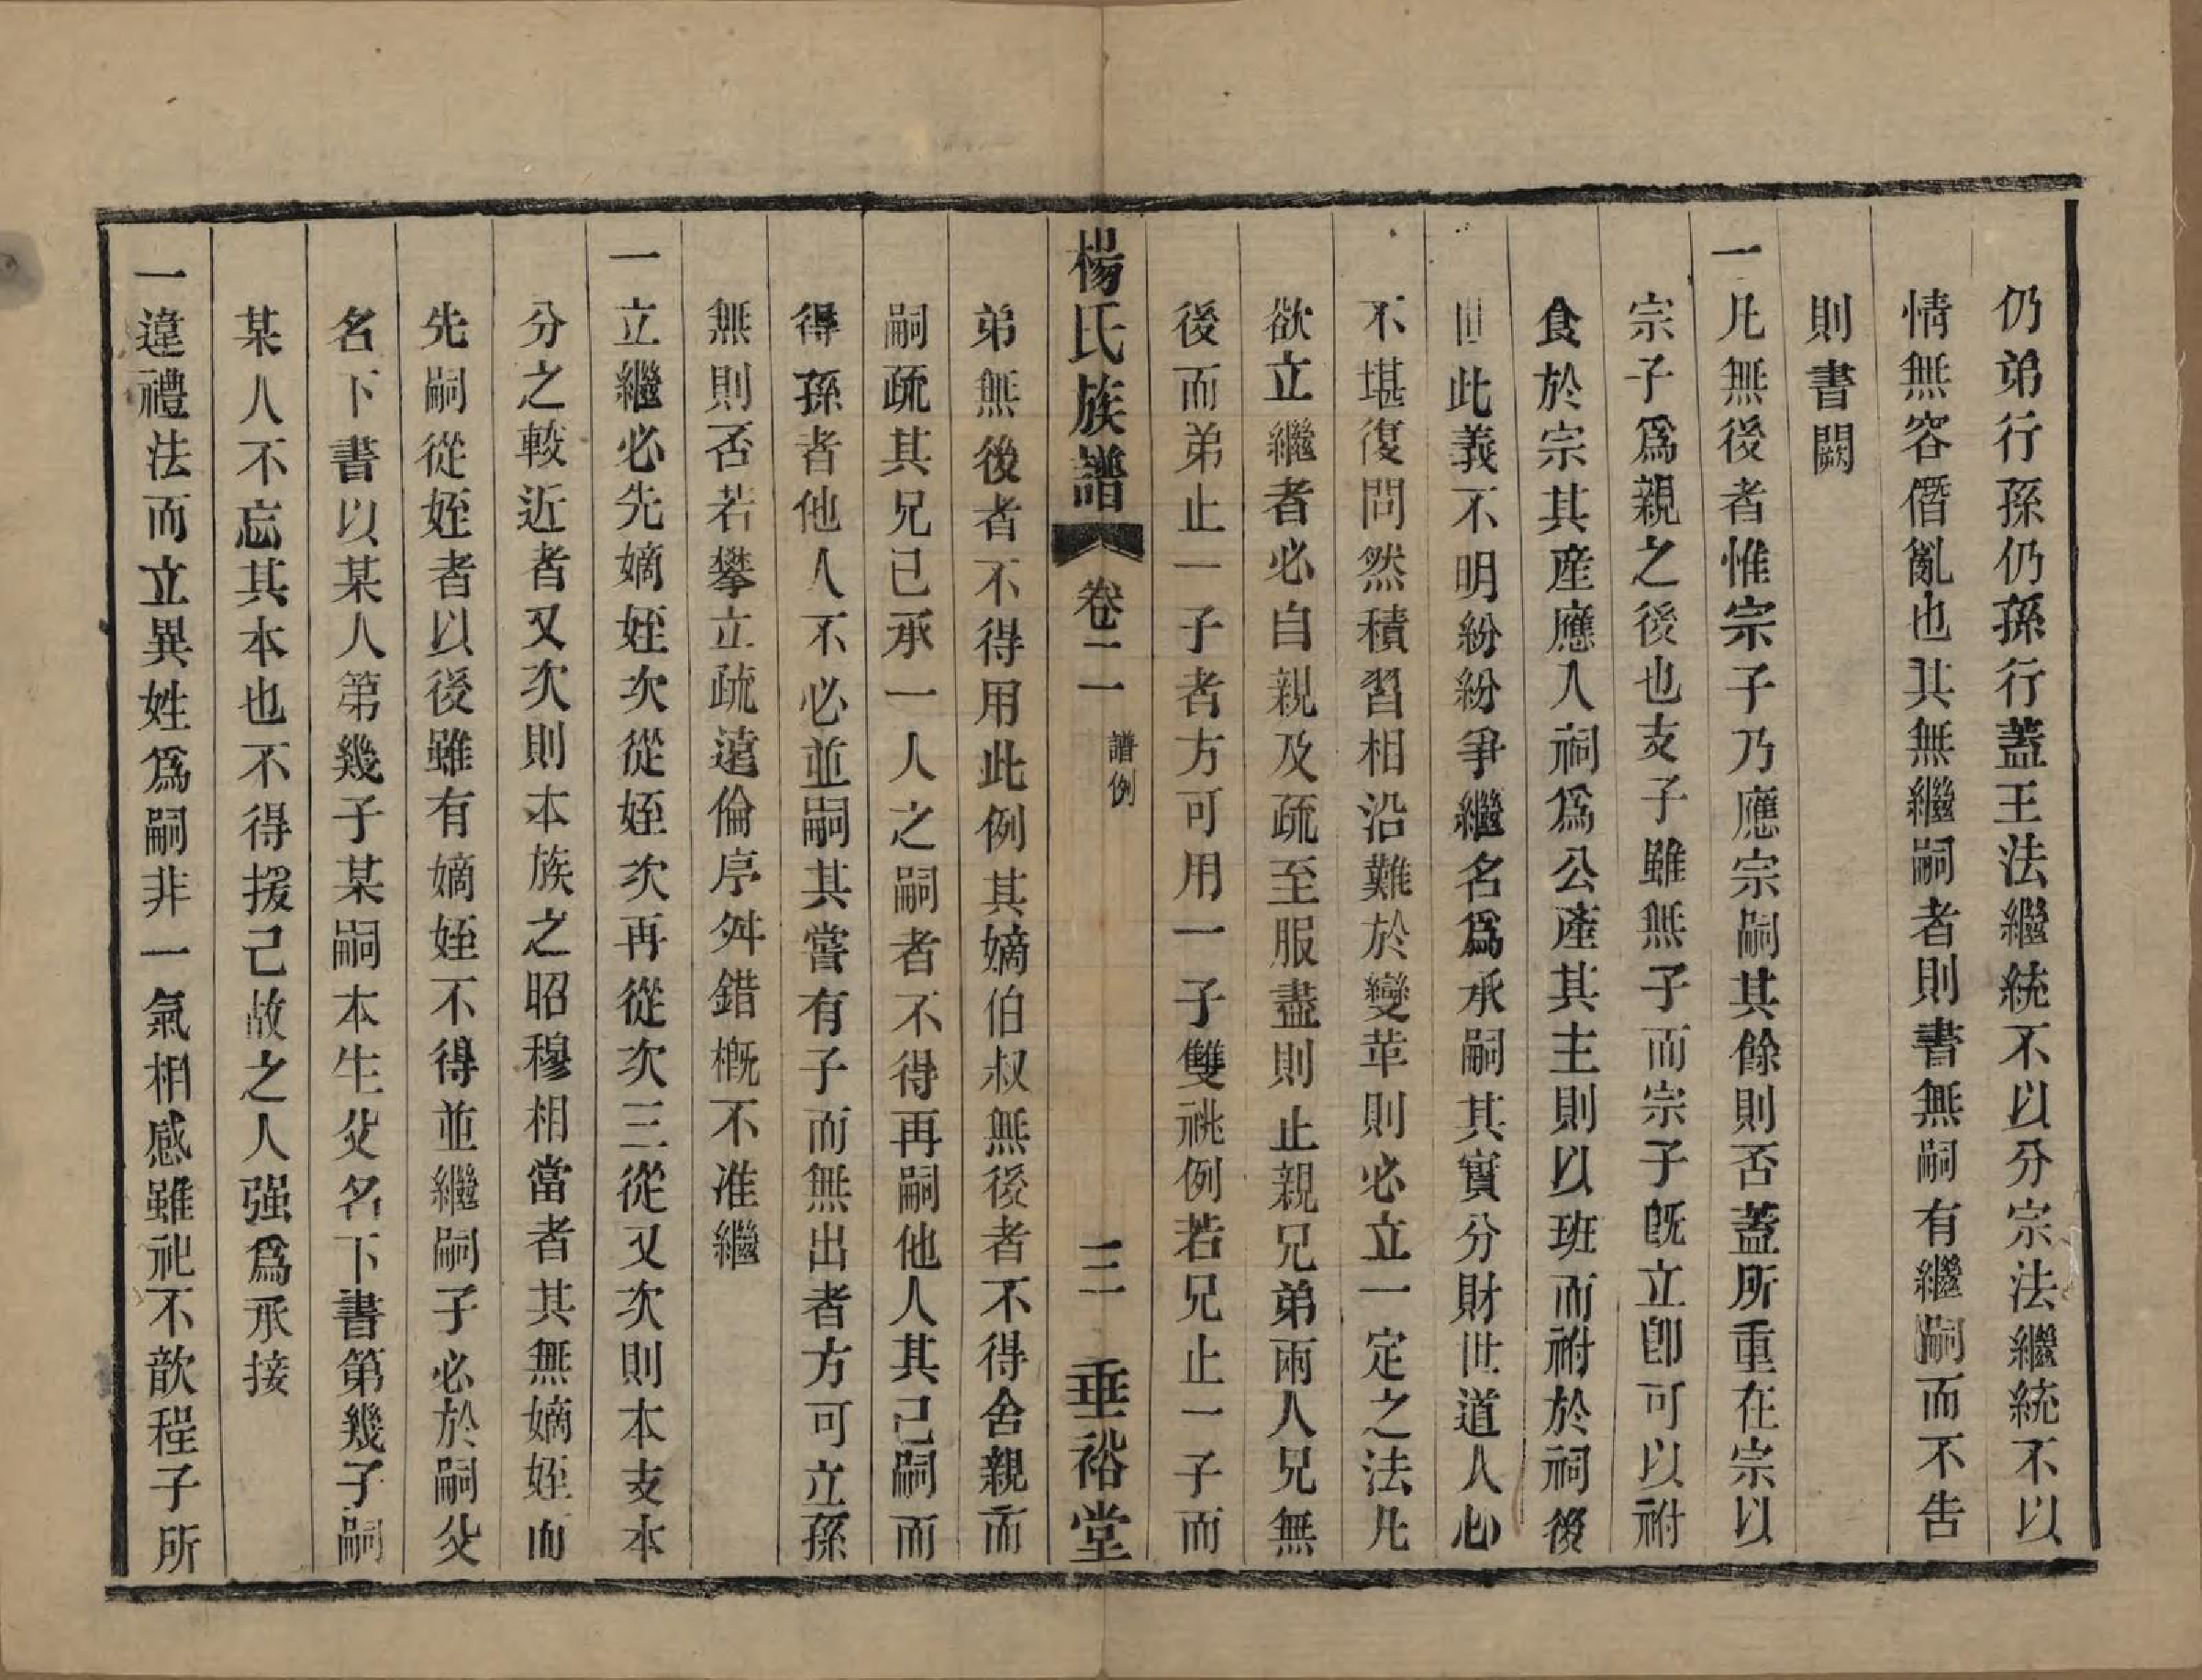 仍弟行孫仍孫行蓋王法繼統不以分宗法繼統不以
情無容僭亂也其無繼嗣者則書無嗣有繼嗣而不告
則書闕
一凡無後者惟宗子乃應宗嗣其餘則否蓋所重在宗以
宗子爲親之後也支子雖無子而宗子旣立卽可以祔
食於宗其産應入祠爲公產其主則以班而祔於祠後
世此義不明紛紛爭繼名爲承嗣其實分財世道人心
不堪復問然積習相沿難於變革則必立一定之法凡
欲立繼者必自親及疏至服盡則止親兄弟兩人兄無
後而弟止一子者方可用一子雙祧例若兄止一子而
楊氏族譜 卷二 譜例 三 垂裕堂
弟無後者不得用此例其嫡伯叔無後者不得舍親而
嗣疏其兄已承一人之嗣者不得再嗣他人其已嗣而
得孫者他人不必並嗣其嘗有子而無出者方可立孫
無則否若攀立疏遠倫序舛錯槪不准繼
一立繼必先嫡姪次從姪次再從次三從又次則本支本
分之較近者又次則本族之昭穆相當者其無嫡姪而
先嗣從姪者以後雖有嫡姪不得並繼嗣子必於嗣父
名下書以某人第幾子某嗣本生父名下書第幾子嗣
某人不忘其本也不得援己故之人强爲承接
一違禮法而立異姓爲嗣非一氣相感雖祀不歆程子所